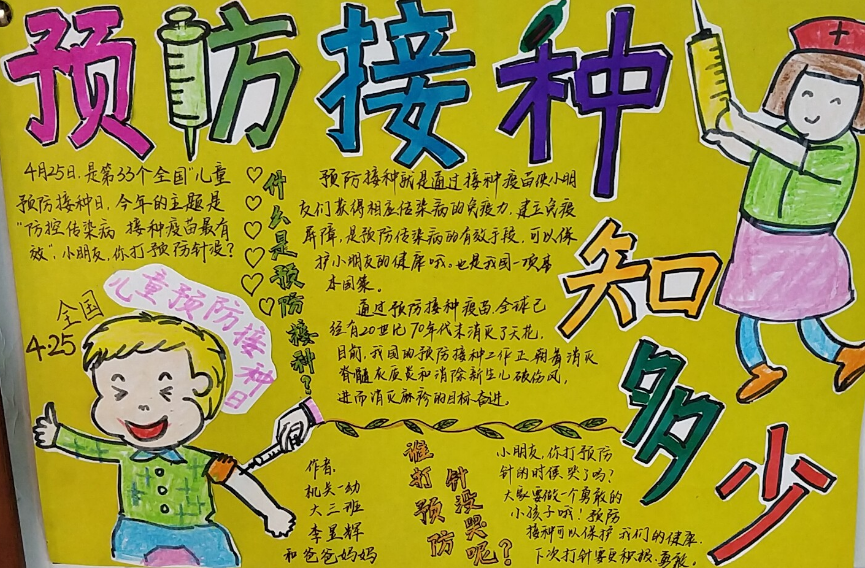 预防接种
知多少
4月25日,是第33个全国"儿童
预防接种日,今年的主题是
"防控传染病 接种疫苗最有
效",小朋友,你打预防针没?
全国
4.25
儿童预防接种日
什么是预防接种?
预防接种就是通过接种疫苗使小朋
友们获得相应传染病的免疫力,建立免疫
屏障,是预防传染病的有效手段,可以保
护小朋友的健康哦。也是我国一项基
本国策。
通过预防接种疫苗,全球已
经有20世纪70年代末消灭了天花,
目前,我国的预防接种工作正朝着消灭
脊髓灰质炎和消除新生儿破伤风,
进而消灭麻疹的目标奋进。
作者:
机关一幼
大三班
李昱辉
和爸爸妈妈
谁打预防
针没哭呢?
小朋友,你打预防
针的时候哭了吗?
大家要做一个勇敢的
小孩子哦!预防
接种可以保护我们的健康,
下次打针要更积极、勇敢。